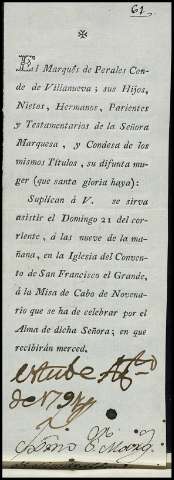 61.
El Marqués de Perales Con-
de de Villanueva; sus Hijos,
Nietos, Hermanos, Parientes
y Testamentarios de la Señora
Marquesa, y Condesa de los
mismos Títulos, su difunta mu-
ger (que santa gloria haya):
Suplican á V. se sirva
asistir el Domingo 21 del cor-
riente, á las nueve de la ma-
ñana, en la Iglesia del Conven-
to de San Francisco el Grande,
á la Misa de Cabo de Novena-
rio que se ha de celebrar por el
Alma de dicha Señora; en que
recibirán merced.
de 179